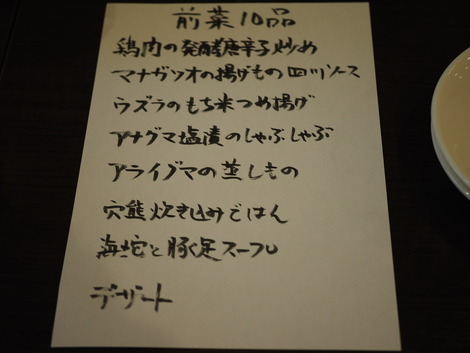 前菜10品
鶏肉の発酵唐辛子炒め
マナガツオの揚げもの四川ソース
ウズラのもち米つめ揚げ
アナグマ塩漬のしゃぶしゃぶ
アライグマの蒸しもの
穴熊炊き込みごはん
海蛇と豚足スープ
デザート